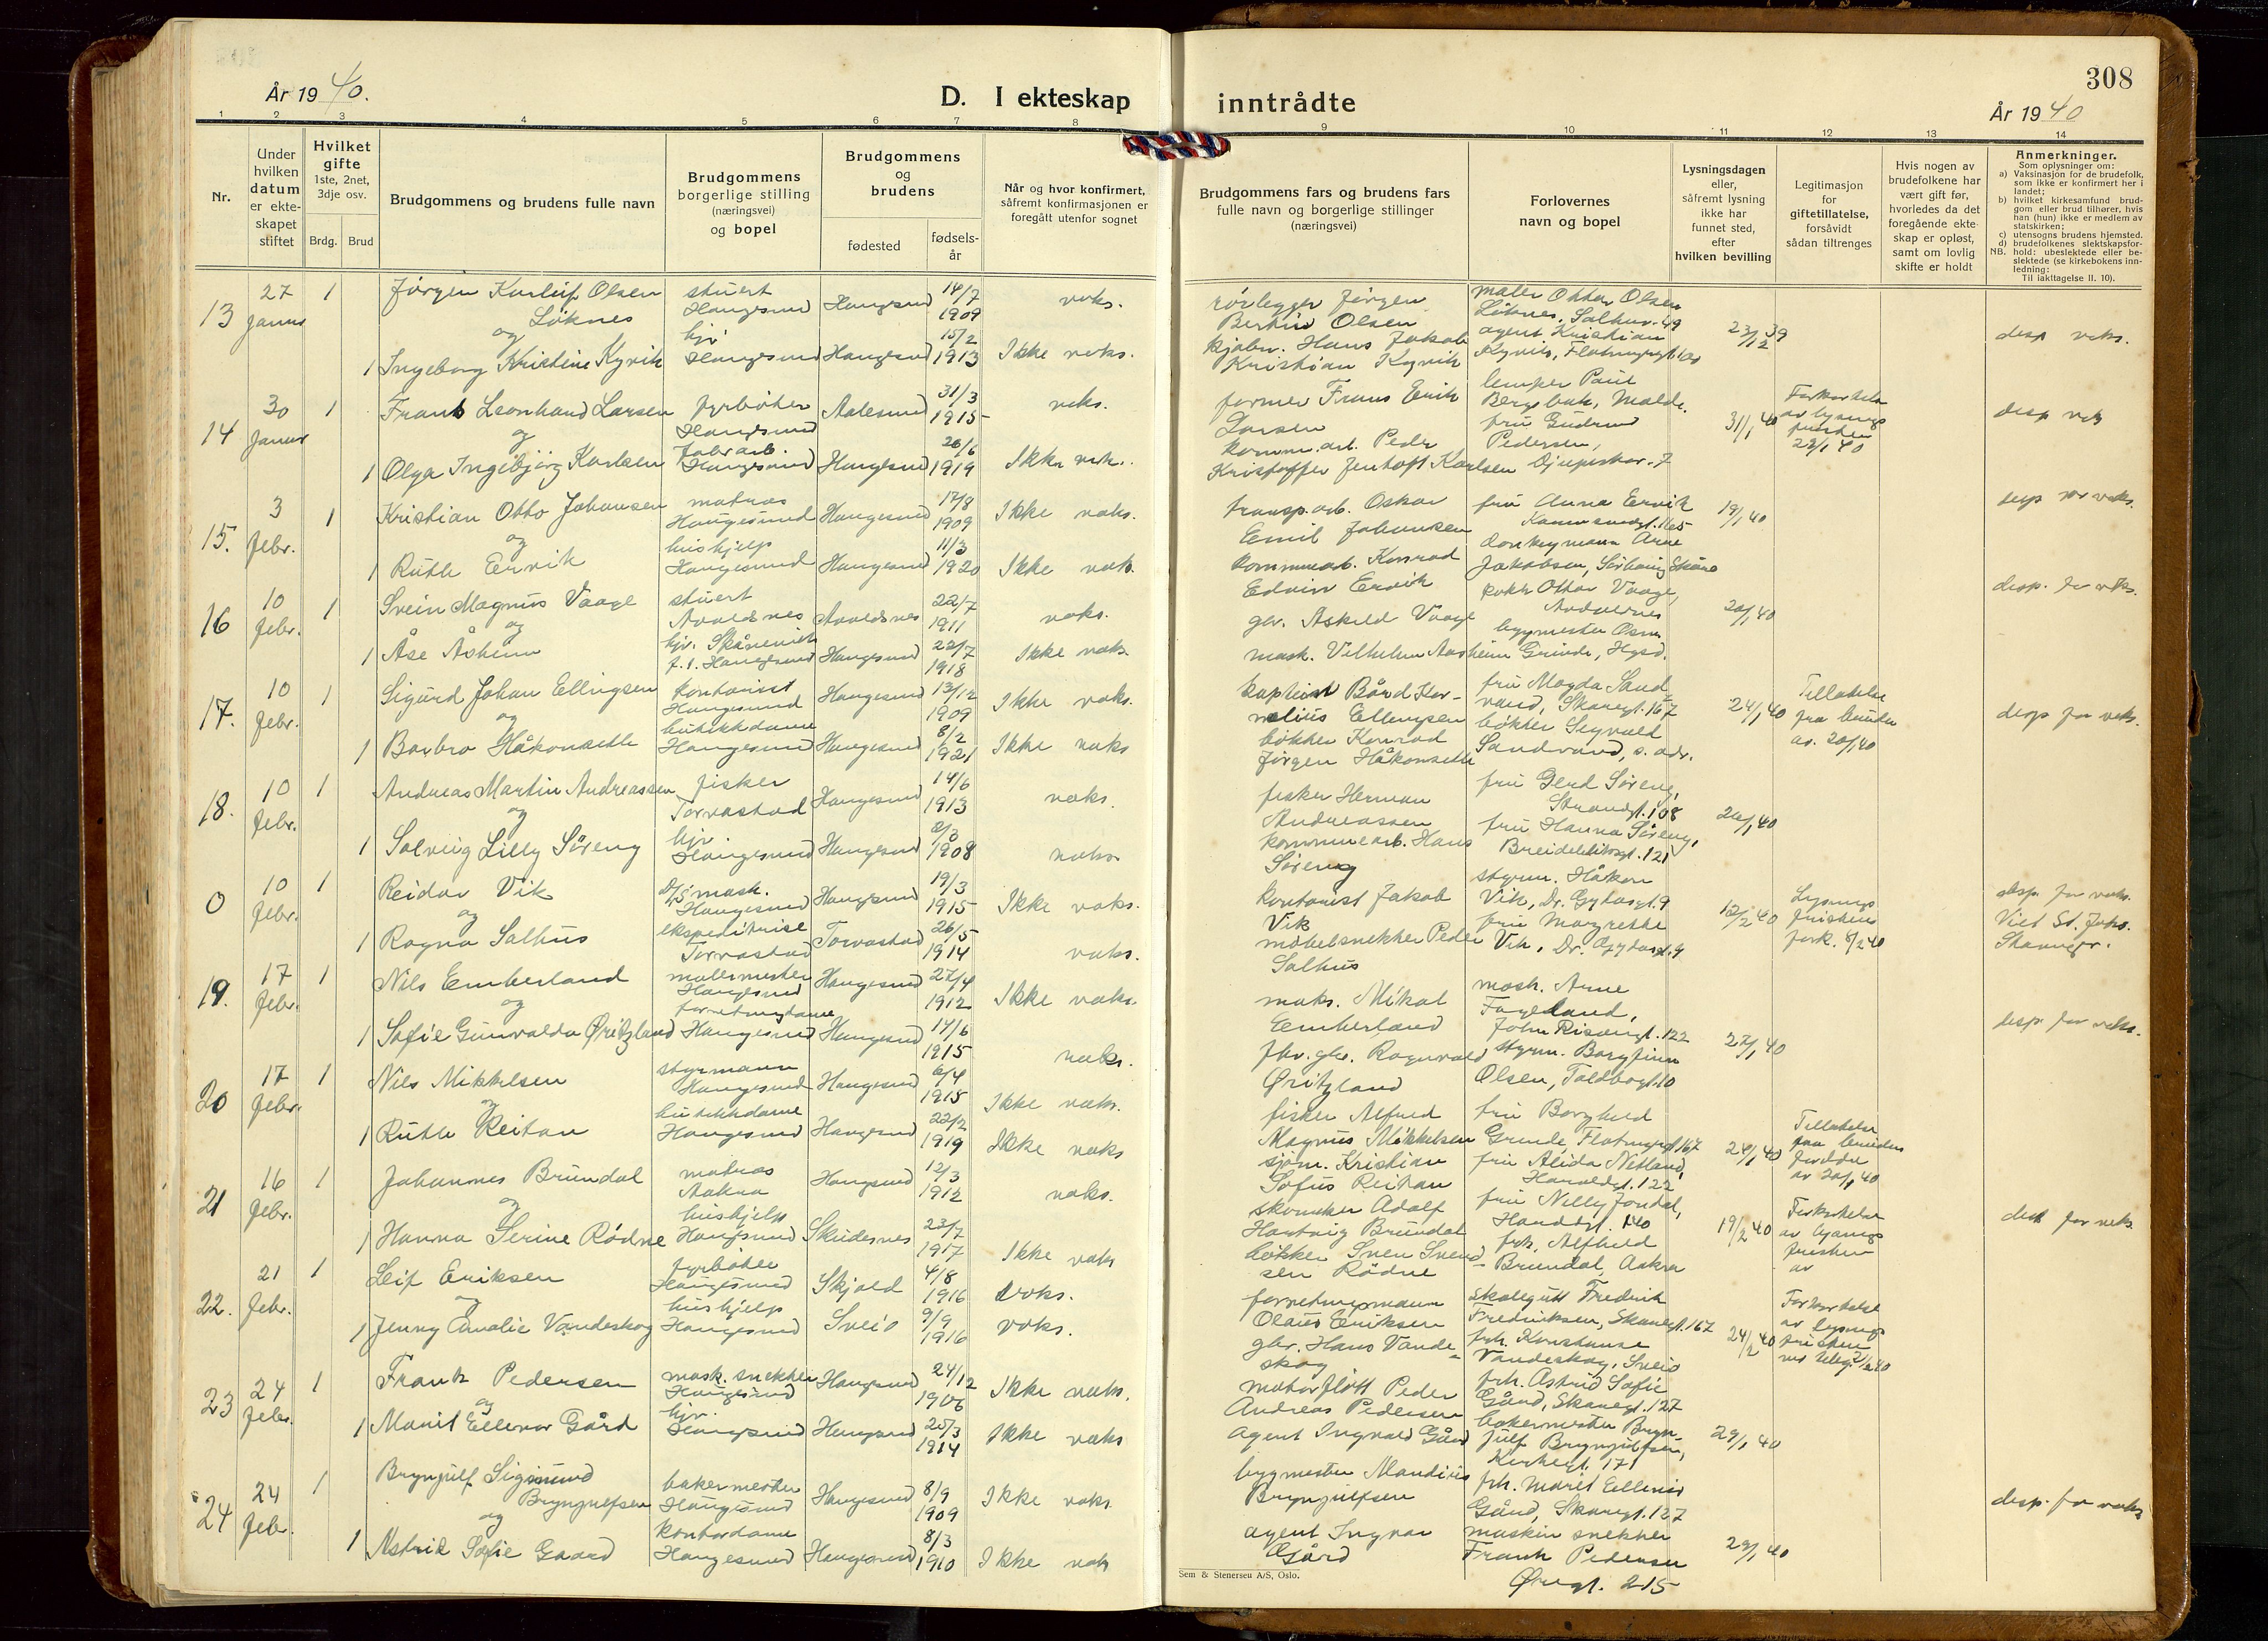 År 1940.
D. I ekteskap
inntrådte
308
År 1940
1 2 3 4 5 6 7 8 9 10 11 12 13 14
Nr.
Under hvilken datum er ekteskapet stiftet
Hvilket gifte
1ste, 2net, 3dje osv.
Brdg. Brud
Brudgommens og brudens fulle navn
Brudgommens borgerlige stilling (næringsvei) og bopel
Brudgommens og brudens
fødested
fødsels-år
Når og hvor konfirmert, såfremt konfirmasjonen er foregått utenfor sognet
Brudgommens fars og brudens fars fulle navn og borgerlige stillinger (næringsvei)
Forlovernes navn og bopel
Lysningsdagen eller, såfremt lysning ikke har funnet sted, efter hvilken bevilling
Legitimasjon for giftetillatelse, forsåvidt sådan tiltrenges
Hvis nogen av brudefolkene har vært gift før, hvorledes da det foregående ekteskap er opløst, samt om lovlig skifte er holdt
Anmerkninger.
Som oplysninger om:
a) Vaksinasjon for de brudefolk, som ikke er konfirmert her i landet;
b) hvilket kirkesamfund brudgom eller brud tilhører, hvis han (hun) ikke er medlem av statskirken;
c) utensogns brudens hjemsted.
d) brudefolkenes slektskapsforhold: ubeslektede eller beslektede (se kirkebokens innledning:
NB.
Til iakttagelse II. 10).
13 27 Januar 1 Jørgen Karluf Olsen Løknes stuert Haugesund Haugesund 14/7 1909 vaks. rørlegger Jørgen Bertin Olsen maler Ottar Olsen Løknes, Salhuv. 49 23/12 39 desp vaks.
og
1 Ingeborg Kristine Kyvik hjv Haugesund Haugesund 15/2 1913 Ikke vaks. kjøbm. Hans Jakob Kristian Kyvik agent Kristian Kyvik,
14 30 Januar 1 Frank Leonhard Larsen fyrbøter Haugesund Aalesund 31/3 1915 vaks. former Frans Erik Larsen lemper Paul Molde. 31/1 40 Forkortelse av lysnings fristen 29/1 40 desp vaks
og
1 Olga Ingebjørg Karlsen fabr.arb. Haugesund Haugesund 26/6 1919 Ikke vaks. komm.arb. Peder Kristoffer Jentoft Karlsen fru Gudrun Pedersen, Djupaskar. 7
15. 3 Febr. 1 Kristian Otto Johansen matros Haugesund Haugesund 17/8 1909 Ikke vaks. transp.arb. Oskar Emil Johansen fru Anna Ervik 19/1 40 desp for vaks.
og
1 Ruth Ervik hushjelp Haugesund Haugesund 11/3 1920 Ikke vaks. kommunearb. Konrad Edvin Ervik donkeymann Arne Jakobsen, Sørhaug Skåre
16 10 Febr. 1 Svein Magnus Vaage stuert Avaldsnes Avaldsnes 22/7 1911 vaks. gbr. Askild Vaage kokk Ottar Vaage, Avaldsnes 20/1 40 desp. for vaks.
og
1 Åse Åsheim hjv. Skånevik f.t. Haugesund Haugesund 22/7 1918 Ikke vaks. mask. Vilhelm Aasheim byggmester Osm. Grinde, Hgsd.
17. 10 Febr. 1 Sigurd Johan Ellingsen kontorist Haugesund Haugesund 13/12 1909 Ikke vaks. kaptein Bård Kornelius Ellingsen fru Magda Sandvand, Skaregt. 167 24/1 40 Tillatelse fra bruden av. 20/1 40 desp for vaks.
og
1 Borbro Håkonseth butikkdame Haugesund Haugesund 8/2 1921 Ikke vaks bøkker Konrad Jørgen Håkonseth bøkker Sigvald Sandvand, s. adr.
18. 10 Febr. 1 Andreas Martin Andreassen fisker Torvastad Haugesund 14/6 1913 vaks. fisker Herman Andreassen fru Gerd Søreng, Strandgt. 108 20/1 40
og
1 Solveig Lilly Søreng hjv. Haugesund Haugesund 2/3 1908 vaks. kommunearb. Hans Søreng fru Hanna Søreng, Breidablikgt. 121
0 10 Febr. 1 Reidar Vik D/S mask. Haugesund Haugesund 19/3 1915 Ikke vaks. kontorist Jakob Vik styrm. Håkon Vik, Dr. Gydasgt. 9 12/2 40 Lysnings fristen fork. 8/2 40 desp. for vaks. Viet St. Joh. Stavanger.
og
1 Ragna Salhus ekspeditrise Torvastad Torvastad 26/5 1914 vaks. møbelsnekker Peder Salhus fru Margrethe Vik, Dr. Gydasgt. 9
19. 17 Febr. 1 Nils Emberland malermester Haugesund Haugesund 27/4 1912 Ikke vaks. mask. Mikal Emberland mask. Arne Fageland, 122 27/1 40 desp for vaks.
og
1 Sofie Gunvalda Øritzland forretningsdame Haugesund Haugesund 14/6 1915 vaks. fhv. gbr. Ragnvald Øritzland styrm. Borgfinn Olsen, Toldbogt. 10
20 17 Febr. 1 Nils Mikkelsen styrmann Haugesund Haugesund 6/4 1915 Ikke vaks. fisker Alfred Magnus Mikkelsen fru Borghild Grinde, Flotmyrgt. 167 24/1 40 Tillatelse fra brudens foreldre av 20/1 40
og
1 Ruth Reitan butikkdame Haugesund Haugesund 22/2 1919 Ikke vaks sjøm. Kristian Sofus Reitan fru Alida Netland, Haraldsgt. 122
21 16 Febr. 1 Johannes Brundal matros Aakra Haugesund 12/3 1912 vaks. skomaker Adolf Hartvig Brundal fru Nelly Jondal, 140 19/2 40 Forkortelse av lysnings fristen av desp for vaks
og
1 Hanna Serine Rødne hushjelp Haugesund Skudesnes 23/7 1917 Ikke vaks bøkker Sven Svendsen Rødne frk. Alfhild Brundal, Aakra
22. 21 Febr. 1 Leif Eriksen fyrbøter Haugesund Skjold 4/8 1916 vaks. forretningsmann Olaus Eriksen skolegutt Fredrik Fredriksen, Skaregt. 167 24/2 40 Forkortelse av lysnings fristen
og
1 Jenny Amalie Vandeskog hushjelp Haugesund Sveio 9/9 1916 vaks. gbr. Hans Vandeskog frk. Konstanse Vandeskog, Sveio
23 24 Febr. 1 Frank Pedersen mask. snekker Haugesund Haugesund 24/12 1906 Ikke vaks. Peder Andreas Pedersen frk. Astrid Sofie Gård, Skaregt. 127 29/1 40
og
1 Marit Ellenor Gård hjv. Haugesund Haugesund 20/3 1914 Ikke vaks agent Ingvald Gård bakermester Brynjulf Brynjulfsen, Kirkegt. 171
24 24 Febr. 1 Brynjulf Sigmund Brynjulfsen bakermester Haugesund Haugesund 8/9 1909 Ikke vaks. bygmester Mandius Brynjulfsen frk. Marit Ellenor Gård, Skaregt. 127 29/1 40 desp. for vaks
og
1 Astrid Sofie Gaard kontordame Haugesund Haugesund 8/3 1910 Ikke vaks agent Ingvar Gård maskin snekker Frank Pedersen Øregt. 215
Sem & Stenersen A/S, Oslo.